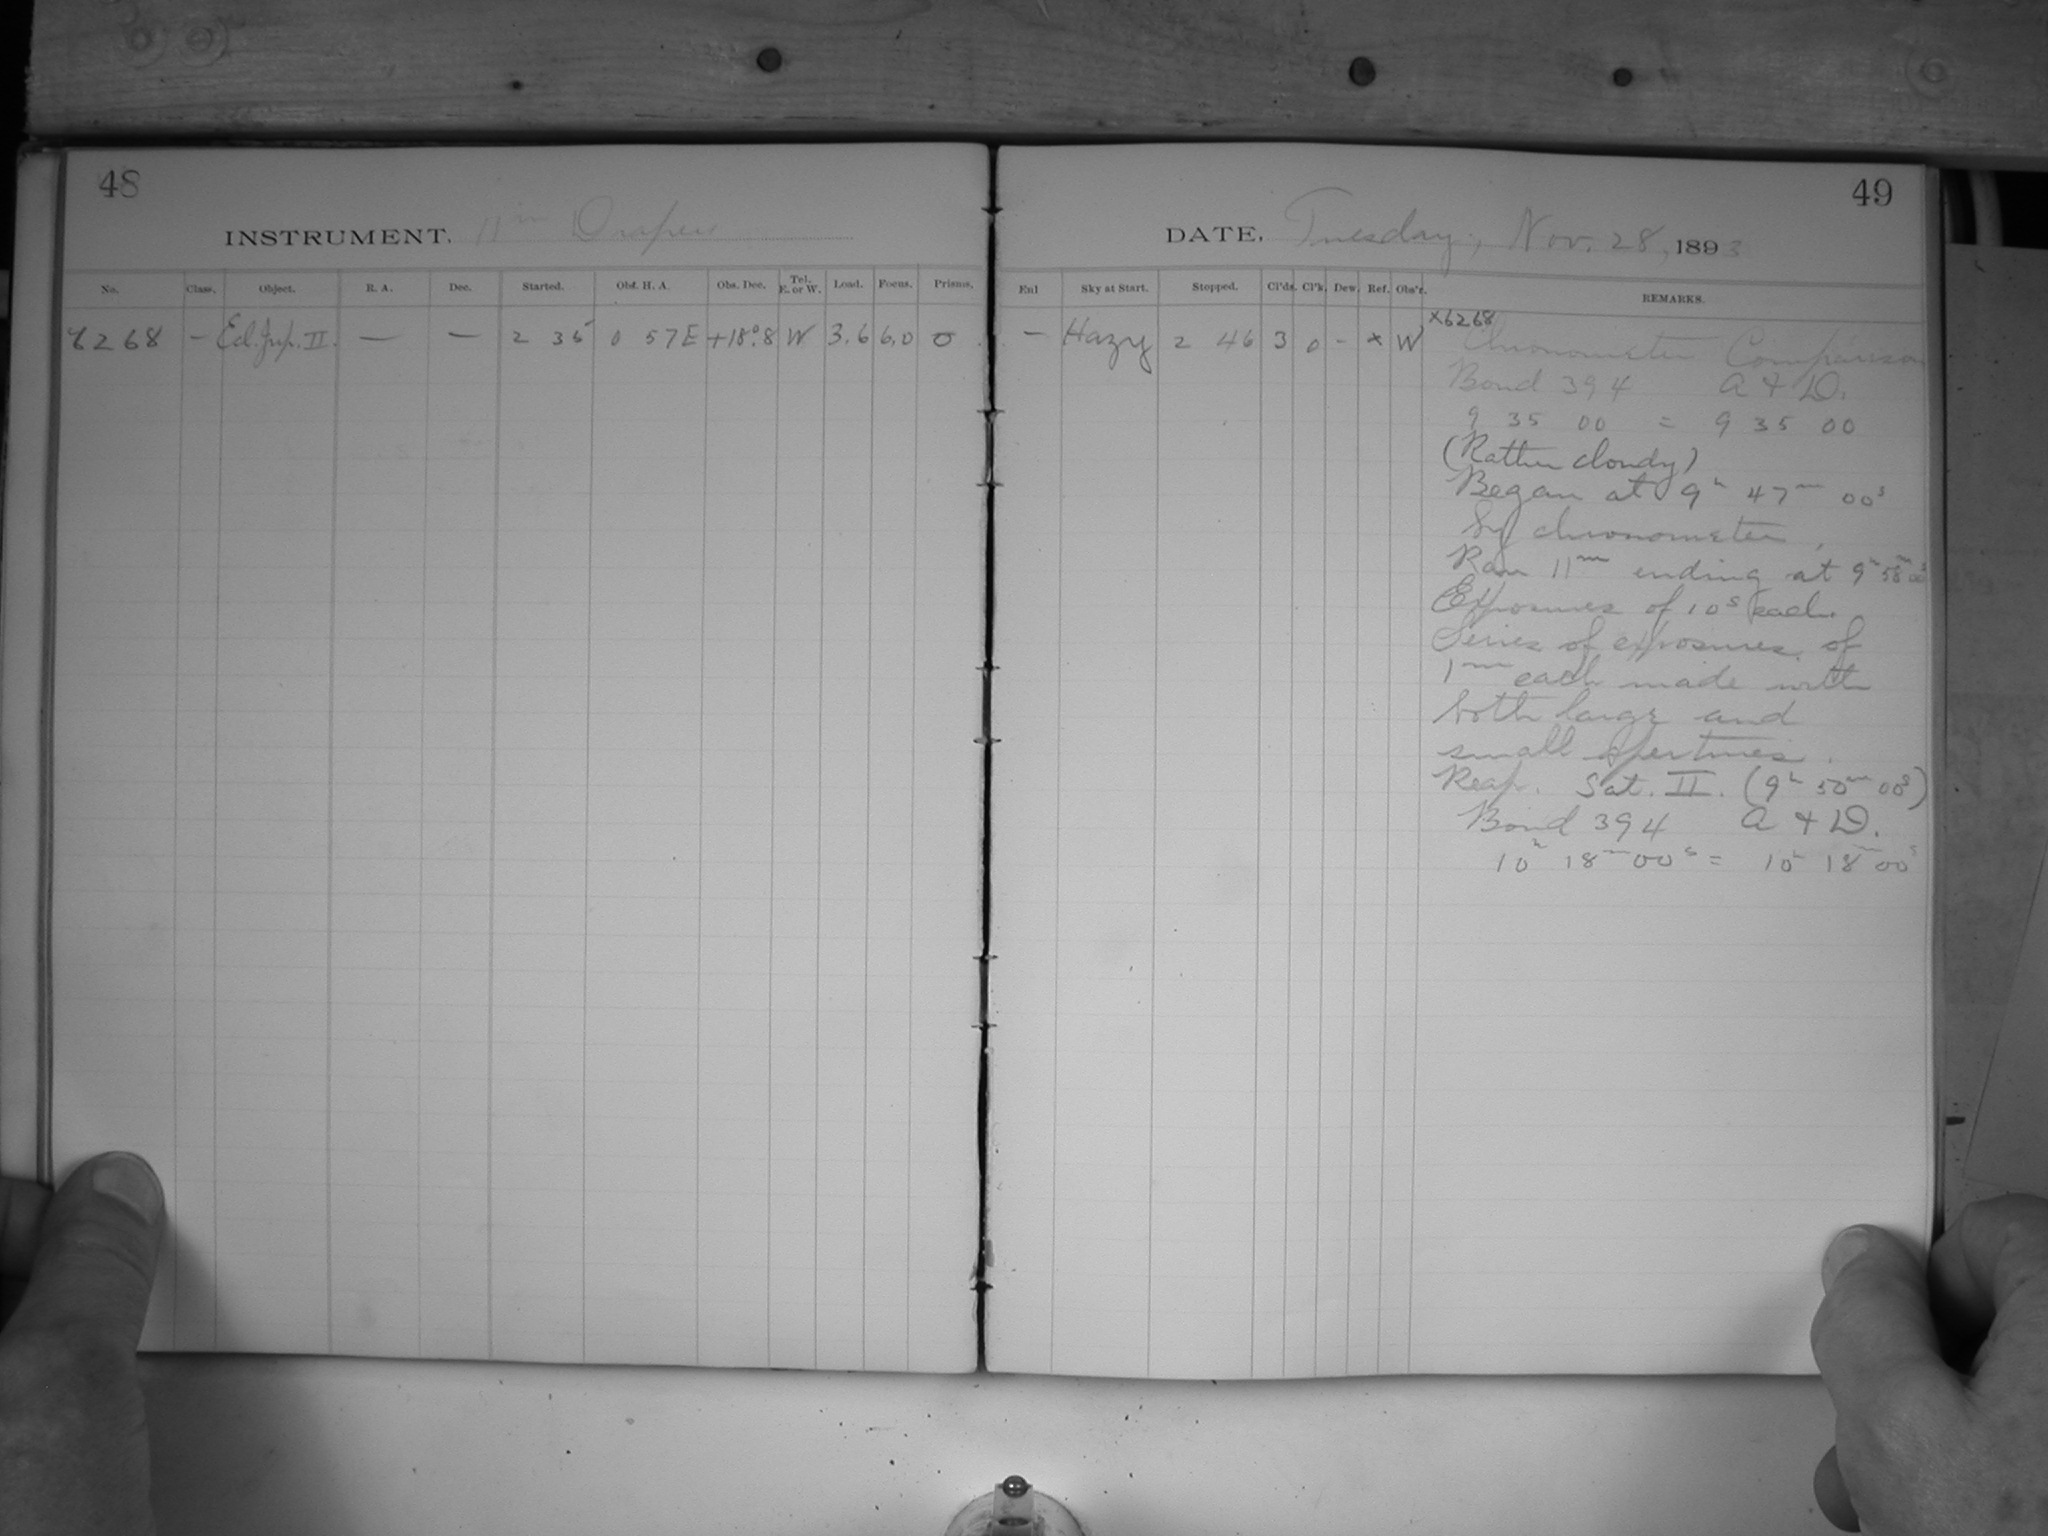 48
INSTRUMENT. 11 in Draper
No. Class. Object. R. A. Dec. Started. Obs. H. A. Obs. Dec. Tel. E. or W. Load. Focus. Prisms.
6268 — Ecl. Jup. II. — — 2 35 0 57E +18°.8 W 3.6 6.0 0
49
DATE, Tuesday, Nov. 28, 1893
Enl Sky at Start. Stopped. Cl'ds. Cl'k. Dew. Ref. Obs'r. REMARKS.
— Hazy 2 46 3 0 - x W
x6268
Chronometer Comparison
Bond 394 A & D.
9 35 00 = 9 35 00
(Rather cloudy)
Began at 9h 47m 00s
by chronometer,
Ran 11m ending at 9h 58m 00s
Exposures of 10s each.
Series of exposures of
1m each made with
both large and
small apertures.
Reap. Sat. II. (9h 50m 00s)
Bond 394 A & D.
10h 18m 00s = 10h 18m 00s